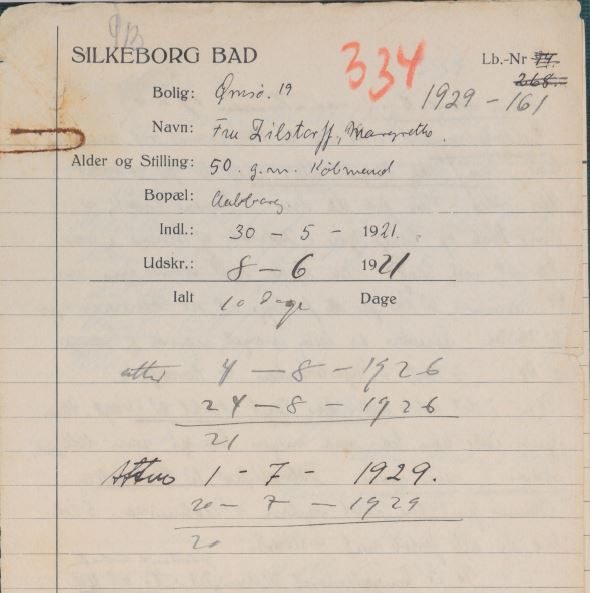 SILKEBORG BAD
334
Lb.-Nr 77.
268.
1929 - 161
Bolig: Ørnsø. 19
Navn: Fru Zilstorff, Margrethe.
Alder og Stilling: 50. g.m. Købmand
Bopæl: Aalborg.
Indl.: 30 - 5 - 1921.
Udskr.: 8 - 6 1921
Ialt 10 Dage Dage
atter 4 - 8 - 1926
24 - 8 - 1926
21
Atter 1 - 7 - 1929.
20 - 7 - 1929
20